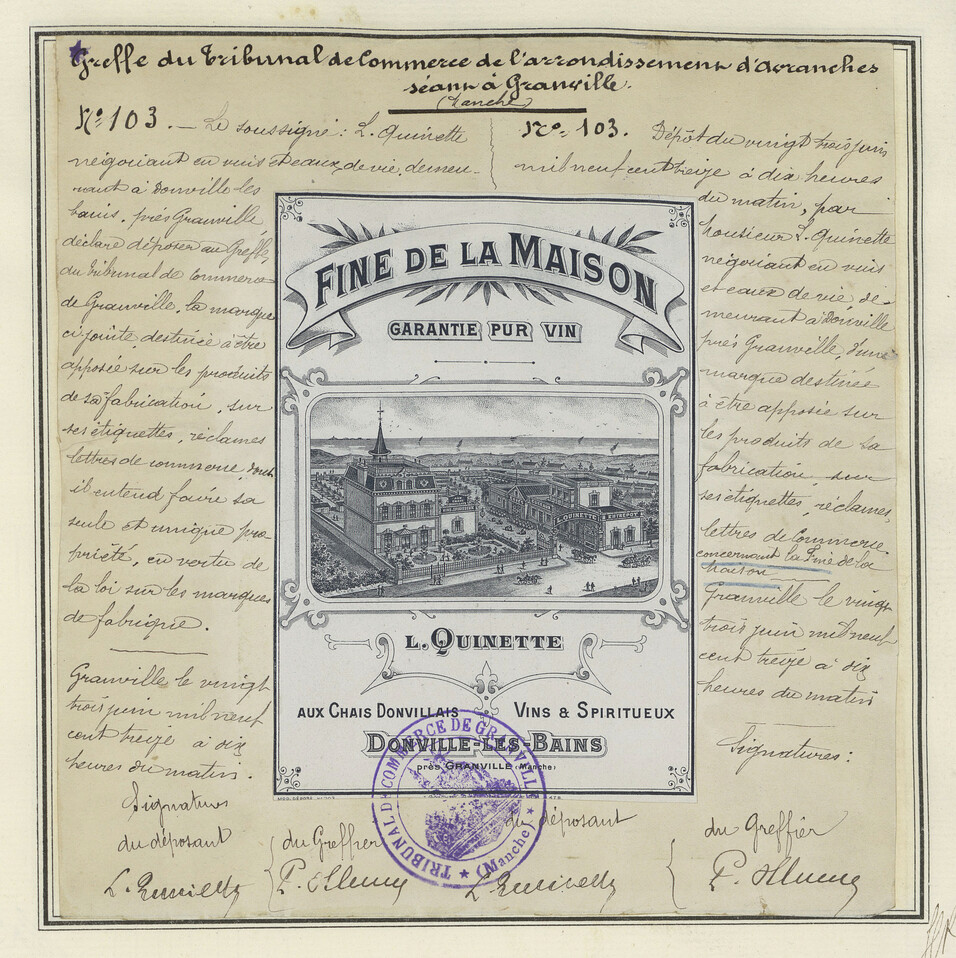 Greffe du Tribunal de Commerce de l'arrondissement d'Avranches
séant à Granville.
(Manche)
No 103. — Le soussigné: L. Quinette
négociant en vins et eaux de vie, demeu-
rant à Donville les
bains, près Granville
déclare déposer au Greffe
du Tribunal de Commerce
de Granville, la marque
ci jointe destinée à être
apposée sur les produits
de sa fabrication, sur
ses étiquettes, réclames
lettres de commerce, dont
il entend faire sa
seule et unique pro-
priété, en vertu de
la loi sur les marques
de fabrique.
Granville le vingt
trois juin mil neuf
cent treize à dix
heures du matin.
Signatures
du déposant
du Greffier
L. Quinette
No 103. Dépôt du vingt trois juin
mil neuf cent treize à dix heures
du matin, par
Monsieur L. Quinette
négociant en vins
et eaux de vie, de-
meurant à Donville
près Granville, d'une
marque destinée
à être apposée sur
les produits de sa
fabrication, sur
ses étiquettes, réclames,
lettres de Commerce.
concernant la Fine de la
Maison
Granville le vingt
trois juin mil neuf
cent treize à dix
heures du matin
Signatures:
du déposant
du Greffier
L. Quinette
FINE DE LA MAISON
GARANTIE PUR VIN
L. QUINETTE ENTREPOT
L. QUINETTE
AUX CHAIS DONVILLAIS VINS & SPIRITUEUX
DONVILLE-LES-BAINS
près GRANVILLE (Manche)
TRIBUNAL DE COMMERCE DE GRANVILLE
(Manche)